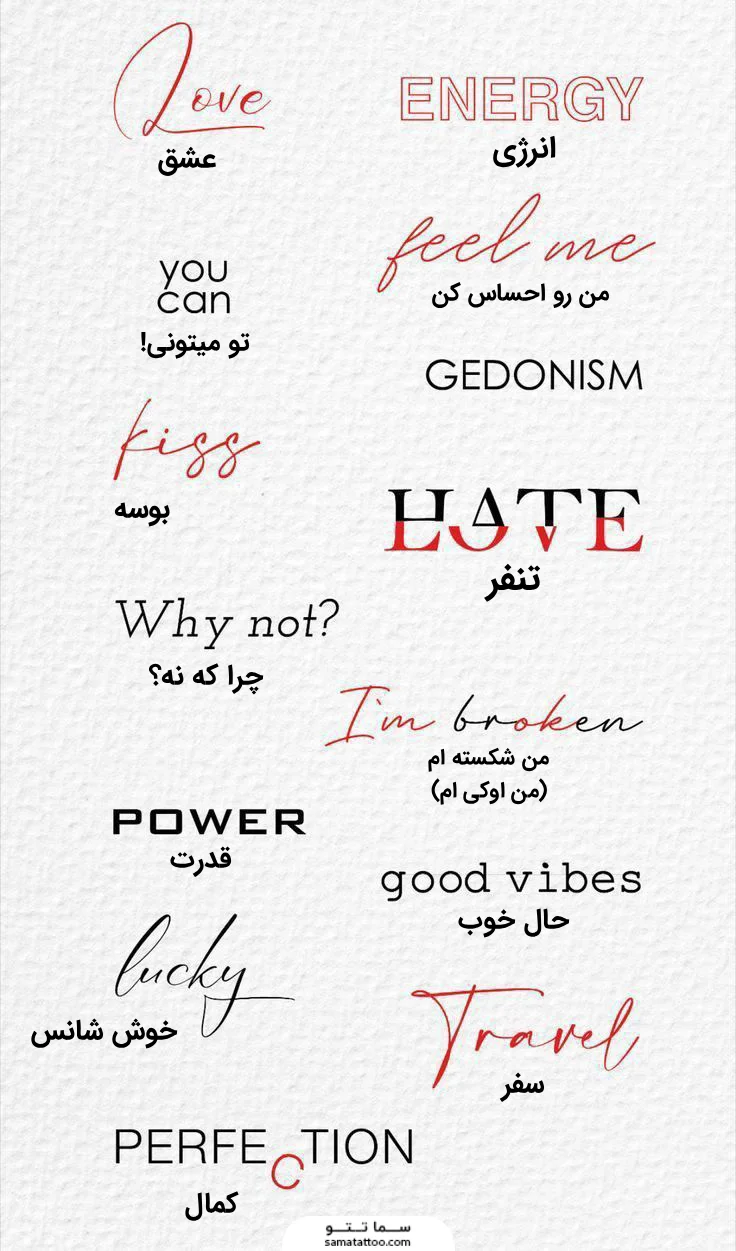 Love
عشق
ENERGY
انرژی
feel me
من رو احساس کن
you
can
تو میتونی!
GEDONISM
kiss
بوسه
HATE
LOVE
تنفر
Why not?
چرا که نه؟
I'm broken
من شکسته ام
(من اوکی ام)
POWER
قدرت
good vibes
حال خوب
lucky
خوش شانس
Travel
سفر
PERFECTION
کمال
سما تتو
samatattoo.com